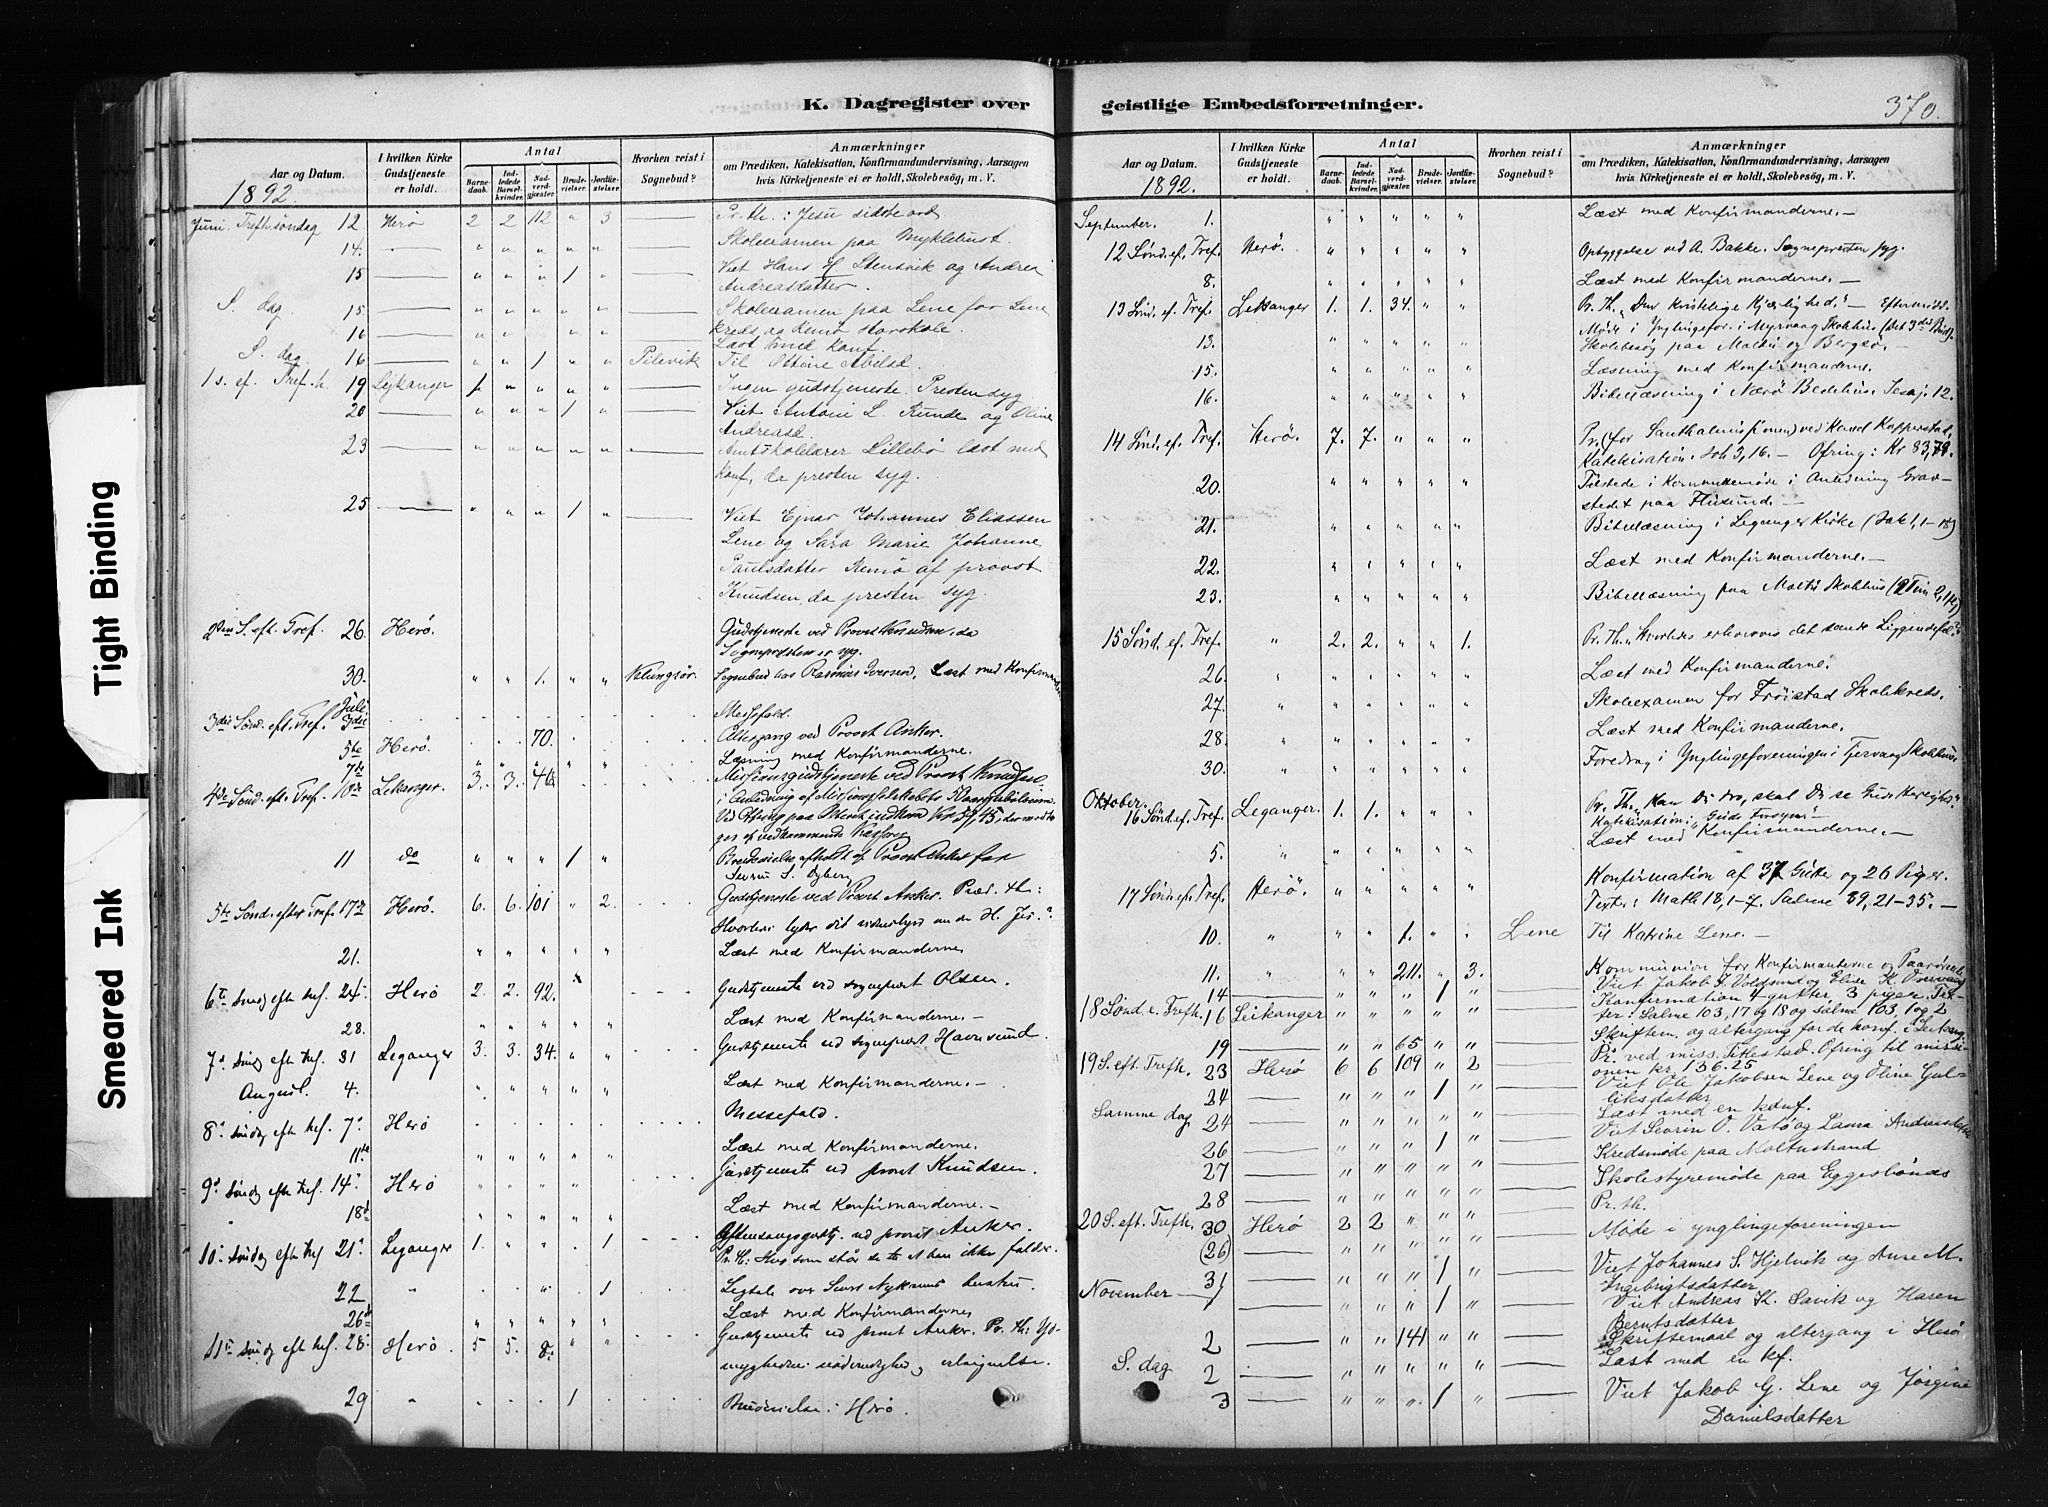 K. Dagregister over
Aar og Datum.
1892.
I hvilken Kirke Gudstjeneste er holdt.
Antal
Barnedaab.
Indledede Barselkvinder.
Nadverdgjæster.
Brudevielser.
Jordfæstelser.
Hvorhen reist i Sognebud?
Anmærkninger
om Prædiken, Katekisation, Konfirmandundervisning, Aarsagen
hvis Kirketjeneste ei er holdt, Skolebesøg, m. V.
Juni. Trefh. søndag 12. Herø 2 2 112 " 3 Pr. th.: Jesu sidste ord
14. " " " " " Skoleexamen paa Myklebust.
15 " " " 1 " Viet Hans H. Stensvik og Andrea
Andreasdatter.
S. dag. 15. " " " " " Skoleexamen paa Lene for Lene
kreds og Remø storskole.
16 " " " " " Læst med konf.
S. dag. 16 " " 1 " " Pilevik Til Ottine Abilsd.
1 s. ef. Tref.h. 19 Leikanger " " " " Ingen gudstjeneste. Presten syg
20 " " " 1 " Viet Antoni L. Runde og Oline
Andreasd.
23 " " " " " Amtskolelærer Lillebø læst med
konf, da presten syg.
25 " " " 1 " Viet Ejnar Johannes Eliassen
Lene og Sara Marie Johanne
Paulsdatter Remø af provst
Knudsen, da presten syg.
2den S. eft. Tref. 26. Herø. Gudstjeneste ved Provst Knudsen, da
Sognepresten er syg.
30. " " 1. " " Klungsør. Sognebud hos Rasmus Iversen. Læst med Konfirmanderne
Juli.
3die Sønd. eft. Tref. 3die Messefald.
5te Herø. 70. Altergang ved Provst Anker.
7de " " " " " Læsning med Konfirmanderne.
4de Sønd. eft. Tref. 10de Lekanger. 3. 3. 46 Missionsgudstjeneste ved Provst Knudsen
i Anledning af Missionsselskabets
11 do " " " 1 " Brudevielse afholdt af Provst Anker for
5te Sønd. efter Tref. 17de Herø. 6. 6. 101 " 2. Gudstjeneste ved Provst Anker. Præd. th:
Hvorledes lyder dit vidnesbyrd om den H. Jes.?
21. " " " " " Læst med Konfirmanderne
6te Sønd efter Tref. 24. Herø 2. 2. 92. Gudstjeneste ved sogneprest Olsen.
28. " " " " " Læst med Konfirmanderne. —
7de Sønd efter Tref. 31 Leganger 3. 3. 34. " " Gudstjeneste ved sogneprest Havnsund.
August. 4. " " " " " Læst med Konfirmanderne. —
8de Søndag efter Tref. 7de Herø Messefald.
11te " " " " " Læst med Konfirmanderne.
9de Søndag efter Tref. 14de Herø " " " " " Gudstjeneste ved provst Knudsen.
18de " " " " " Læst med Konfirmanderne. —
10de Søndag efter Tref 21de Leganger 1. " " " 1 Aftensangsgudstj. ved provst Anker.
Pr. th: Hvo som står se te at han ikke falder.
22 " " 1
26de " " " " " Læst med Konfirmanderne
11te Søndag efter Tref. 28de Herø. 5 5. " " Gudstjeneste ved provst Anker. Pr. th:
29 " 1 Brudevielse i Herø.
geistlige Embedsforretninger.
370.
Aar og Datum.
1892.
I hvilken Kirke Gudstjeneste er holdt.
Antal
Barnedaab.
Indledede Barselkvinder.
Nadverdgjæster.
Brudevielser.
Jordfæstelser.
Hvorhen reist i Sognebud?
Anmærkninger
om Prædiken, Katekisation, Konfirmandundervisning, Aarsagen
hvis Kirketjeneste ei er holdt, Skolebesøg, m. V.
September. 1. " " " " " Læst med Konfirmanderne. —
12 Sønd. ef. Tref. Herø. " " " " " Opbyggelse ved A. Bakke. Sognepresten syg.
8. " " " " " Læst med Konfirmanderne. —
13 Sønd. ef. Tref. Leikanger 1. 1. 34. " " Pr. Th. „Den kristelige Kjærlighed." — Eftermidd.
Møde i Ynglingefor. i Myrvaag Skolhus
13. " " " " " Skolebesøg paa Moltu og Bergsø. —
15. " " " " " Læsning med Konfirmanderne.
16. " " " " " Bibellæsning i Nærø Bedehus. Jesaj. 12.
14 Sønd. ef. Tref. Herø. 7. 7. " " " Pr. (for Santhalmissionen) ved Knud Kopperstad.
Katekisation. Joh 3, 16. — Ofring: Kr 83,79.
20. " " " " " Tilstede i Kommunemøde i Anledning Grav-
stedet paa Flusund. —
21. " " " " " Bibellæsning i Leganger Kirke (Jak. 1, 1-18)
22. " " " " " Læst med Konfirmanderne. —
23. " " " " " Bibellæsning paa Moltu Skolhus
15 Sønd. ef. Tref. " 2. 2. " " 1. Pr. Th. „Hvorledes erhverves det sande
26. " " " " " " Læst med Konfirmanderne.
27. " " " " " " Skoleexamen for Frøistad Skolekreds.
28. " " " " " " Læst med Konfirmanderne.
30. " " " " " " Foredrag i Ynglingeforeningen i Tjørvaag Skolhus.
Oktober.
16 Sønd. ef. Tref. Leganger. 1. 1. " " " Pr. Th. „Kan Du tro, skal Du se Guds Herlighed."
Katekisation: „Guds Forsyn." —
5. " " " " " " Læst med Konfirmanderne. —
17 Sønd. ef. Tref. Herø. " " " " " Konfirmation af 37 Gutter og 26 Piger.
Texter: Math 18, 1-7. Salme 89, 21-35. —
10. " " " 1. " " Lene Til Katrine Lene. —
11. " " " 211. " 3. Kommunion for Konfirmanterne og Paarørende
14 " " " 1 " Viet Jakob J. Voldsund og Elise K.
18 Sønd. e. Trefh. 16 Leikanger " " " " " Konfirmation 7 gutter 3 piger. Tex-
ter: Salme 103, 17 og 18 og salme 103, 1 og 2
19 " " 65 " " Skriftem. og altergang for de konf. i Leikang.
19 S. eft. Trefh. 23 Herø 6 6 109 " 2 Pr. ved miss. Tittestad. Ofring til missi-
onen kr. 136.25
24 " " " 1 " Viet Ole Jakobsen Lene og Oline Gul-
liksdatter
Samme dag 24 " " " " " Læst med en konf.
26 " " " 1 " Viet Sevrin O. Vatø og Lama Andreasdatter
27 " " " " " Kredsmøde paa Moltustrand
28 " " " " " Skolestyremøde paa Eggesbønæs
20 S. eft. Trefh. 30 Herø 2 2 " " " Pr. th.
(26) " " " " " Møde i ynglingeforeningen
31 " " " 1 " Viet Johannes S. Hjelvik og Anne M.
Ingebrigtsdatter
November 1 " " " 1 " Viet Andreas K. Savik og Karen
Berntsdatter
2 " " 141 " " Skriftemaal og altergang i Herø
S. dag 2 " " " " " Læst med en kf.
3 " " " 1 " Viet Jakob G. Lene og Jørgine
Danielsdatter
Tight Binding
Smeared Ink